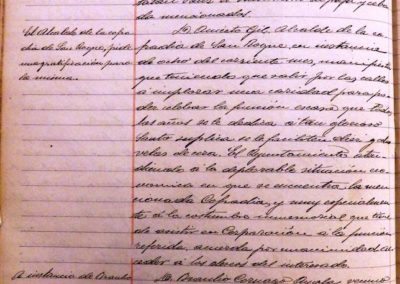 da mencionados.
El Alcalde de la cofra-
dia de San Roque, pide
una gratificación para
la misma.
D. Aniceto Gil, Alcalde de la co-
fradia de San Roque, en instancia
de ocho del corriente mes, manifiesta
que teniendo que salir por las calles
á implorar una caridad para po-
der celebrar la función ecsara que todos
los años se le dedica á tan glorioso
Santo suplica se le faciliten diez y dos
velas de cera. El Ayuntamiento aten-
diendo á la deplorable situación eco-
nomica en que se encuentra la men-
cionada Cofradia, y muy especialmen-
te á la costumbre inmemorial que tiene
de asistir en Corporación á la función
referida, acuerda por unanimidad ac-
ceder á los deseos del interesado.
A instancia de Braulio
D. Braulio vecino